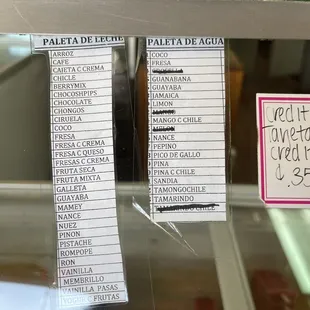 PALETA DE LECHE
ARROZ
CAFE
CAJETA C CREMA
CHICLE
BERRYMIX
CHOCOSHPIPS
CHOCOLATE
CHONGOS
CIRUELA
COCO
FRESA
FRESA C CREMA
FRESA C QUESO
FRESAS C CREMA
FRUTA SECA
FRUTA MIXTA
GALLETA
GUAYABA
MAMEY
NANCE
NUEZ
PINON
PISTACHE
ROMPOPE
RON
VAINILLA
MEMBRILLO
VAINILLA PASAS
FRUTAS
PALETA DE AGUA
COCO
FRESA
GUANABANA
GUAYABA
JAMAICA
LIMON
MANGO C CHILE
MELON
NANCE
PEPINO
PICO DE GALLO
PINA
PINA C CHILE
SANDIA
TAMONGOCHILE
TAMARINDO
CHILE
credit
Tarjeta
credit
¢.35